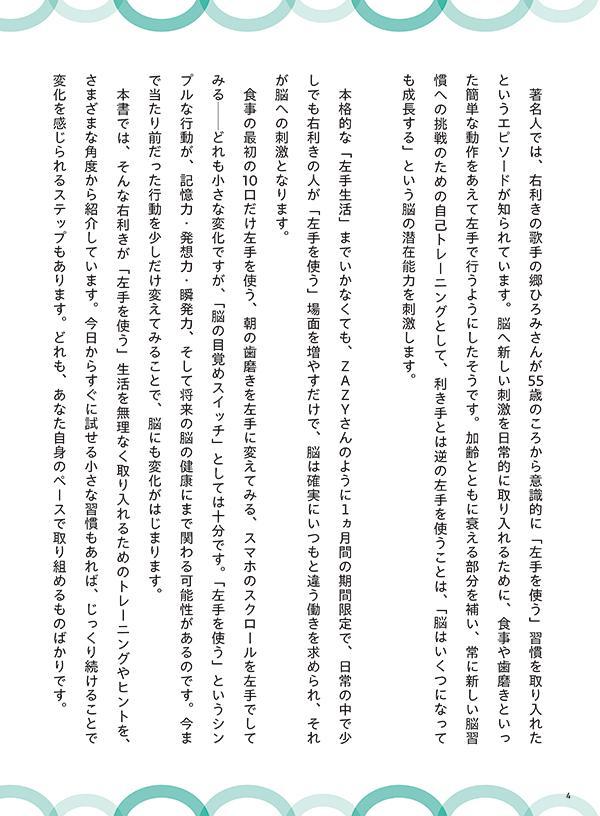 著名人では、右利きの歌手の郷ひろみさんが55歳のころから意識的に「左手を使う」習慣を取り入れた
というエピソードが知られています。脳へ新しい刺激を日常的に取り入れるために、食事や歯磨きといっ
た簡単な動作をあえて左手で行うようにしたそうです。加齢とともに衰える部分を補い、常に新しい脳習
慣への挑戦のための自己トレーニングとして、利き手とは逆の左手を使うことは、「脳はいくつになって
も成長する」という脳の潜在能力を刺激します。
本格的な「左手生活」までいかなくても、ZAZYさんのように1ヵ月間の期間限定で、日常の中で少
しでも右利きの人が「左手を使う」場面を増やすだけで、脳は確実にいつもと違う働きを求められ、それ
が脳への刺激となります。
食事の最初の10口だけ左手を使う、朝の歯磨きを左手に変えてみる、スマホのスクロールを左手でして
みる――どれも小さな変化ですが、「脳の目覚めスイッチ」としては十分です。「左手を使う」というシン
プルな行動が、記憶力・発想力・瞬発力、そして将来の脳の健康にまで関わる可能性があるのです。今ま
で当たり前だった行動を少しだけ変えてみることで、脳にも変化がはじまります。
本書では、そんな右利きが「左手を使う」生活を無理なく取り入れるためのトレーニングやヒントを、
さまざまな角度から紹介しています。今日からすぐに試せる小さな習慣もあれば、じっくり続けることで
変化を感じられるステップもあります。どれも、あなた自身のペースで取り組めるものばかりです。
4